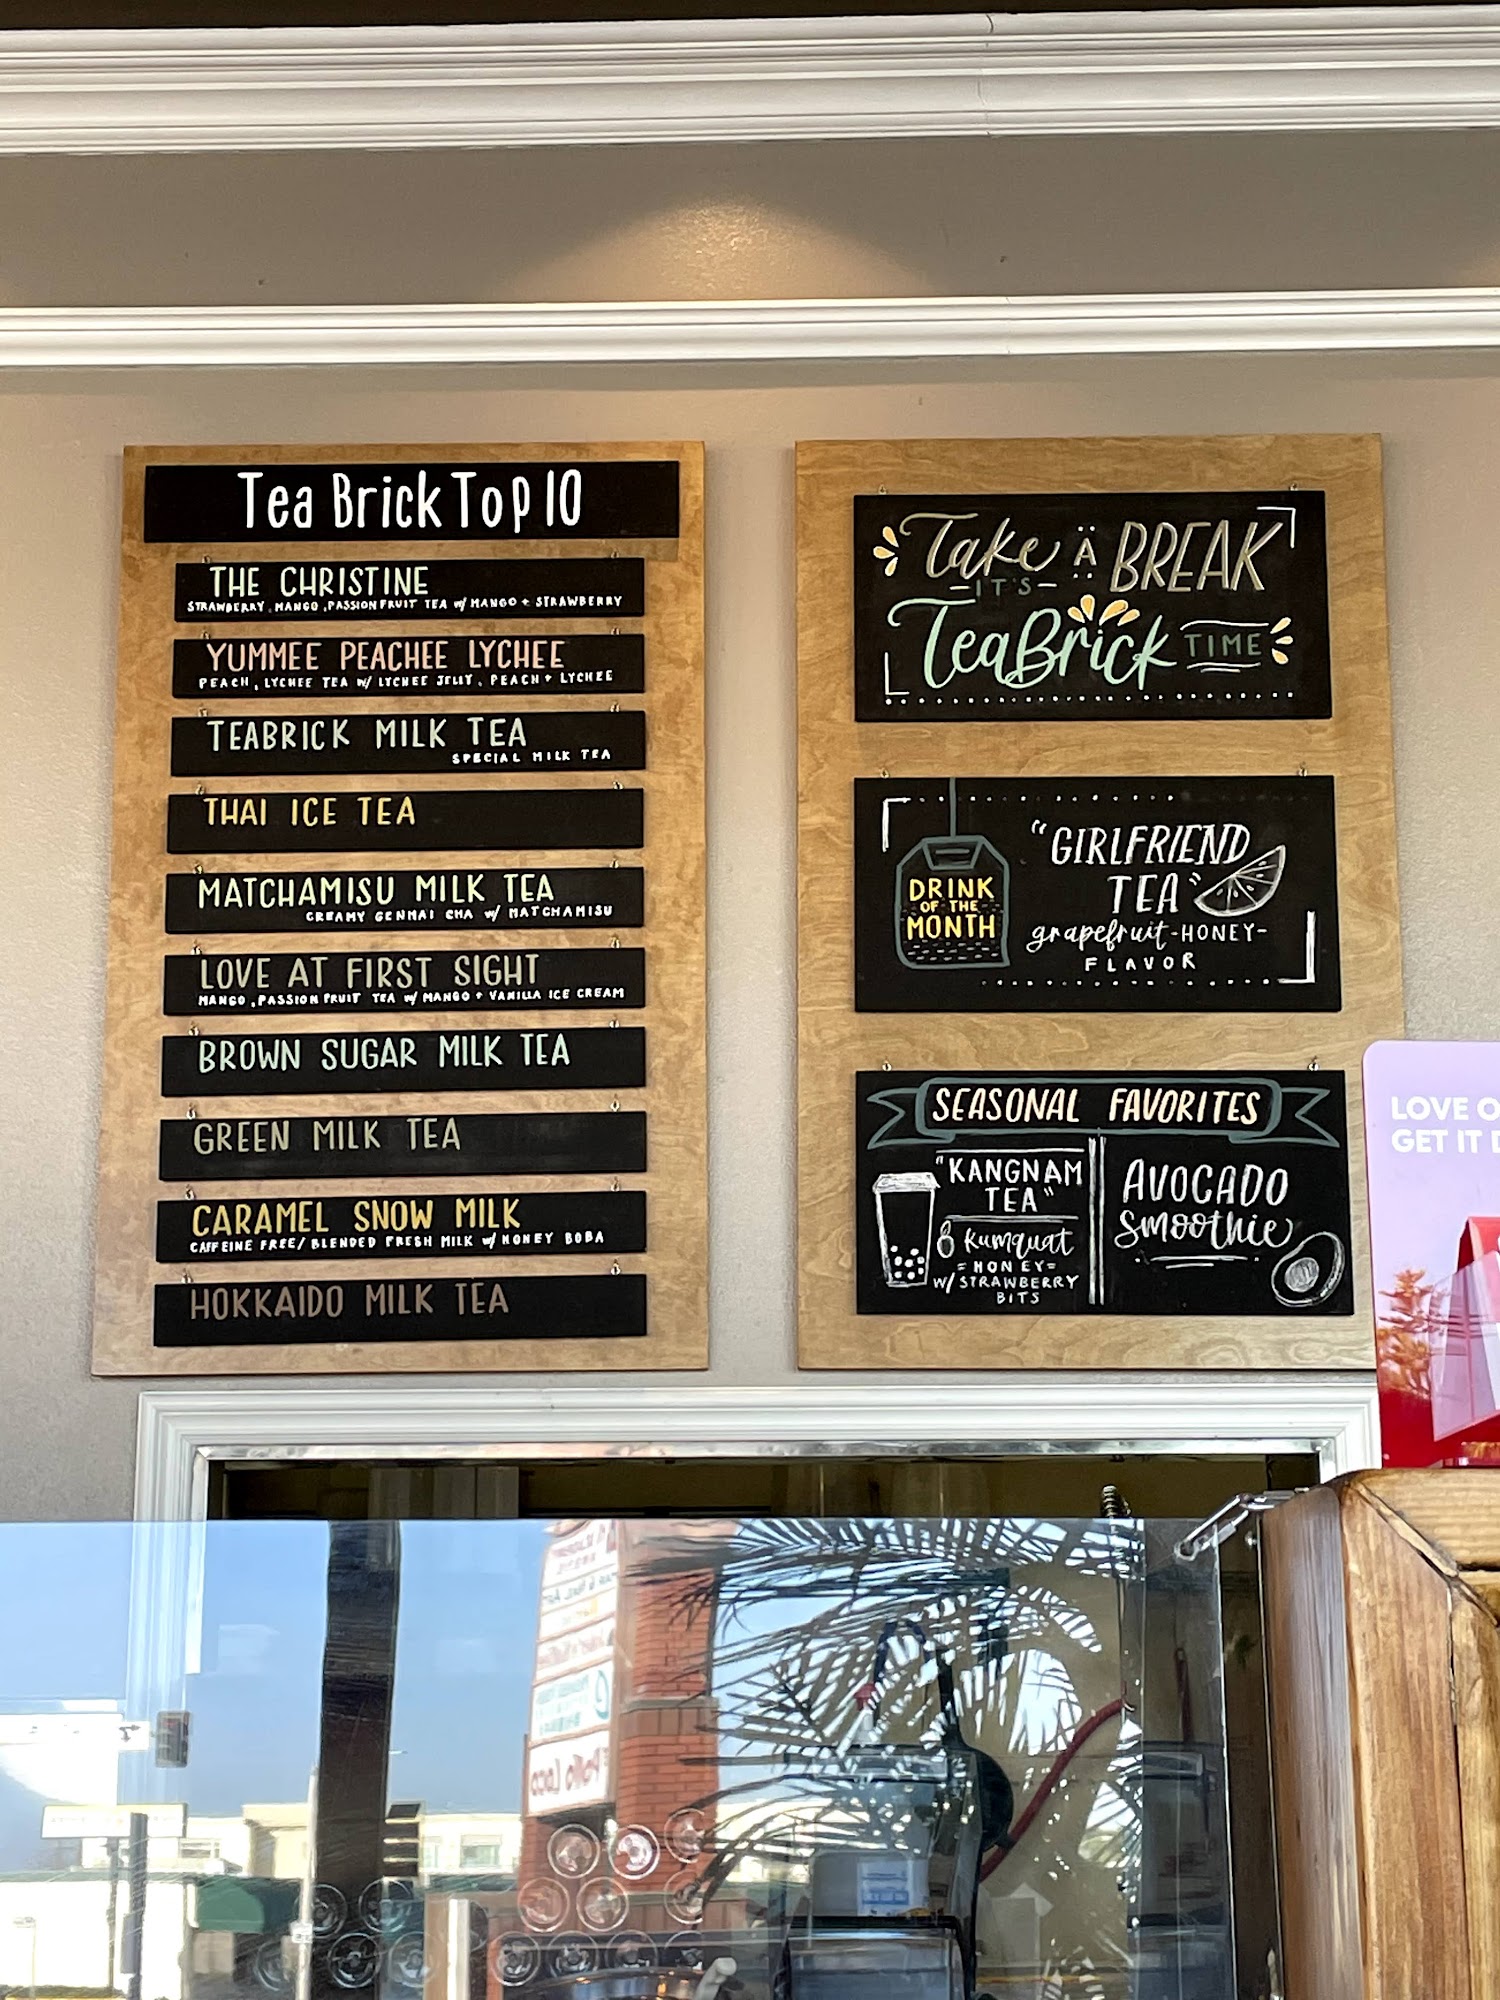 Tea Brick Top 10
THE CHRISTINE
STRAWBERRY, MANGO, PASSIONFRUIT TEA w/ MANGO + STRAWBERRY
YUMMEE PEACHEE LYCHEE
PEACH, LYCHEE TEA w/ LYCHEE JELLY, PEACH + LYCHEE
TEABRICK MILK TEA
SPECIAL MILK TEA
THAI ICE TEA
MATCHAMISU MILK TEA
CREAMY GENMAI CHA w/ MATCHAMISU
LOVE AT FIRST SIGHT
MANGO, PASSION FRUIT TEA w/ MANGO + VANILLA ICE CREAM
BROWN SUGAR MILK TEA
GREEN MILK TEA
CARAMEL SNOW MILK
CAFFEINE FREE/ BLENDED FRESH MILK w/ HONEY BOBA
HOKKAIDO MILK TEA
Take A BREAK
-IT'S-
TeaBrick TIME
DRINK
OF THE
MONTH
"GIRLFRIEND
TEA"
grapefruit-HONEY-
FLAVOR
SEASONAL FAVORITES
"KANGNAM
TEA"
kumquat
=HONEY=
W/ STRAWBERRY
BITS
AVOCADO
Smoothie
LOVE O
GET IT
Pollo Loco